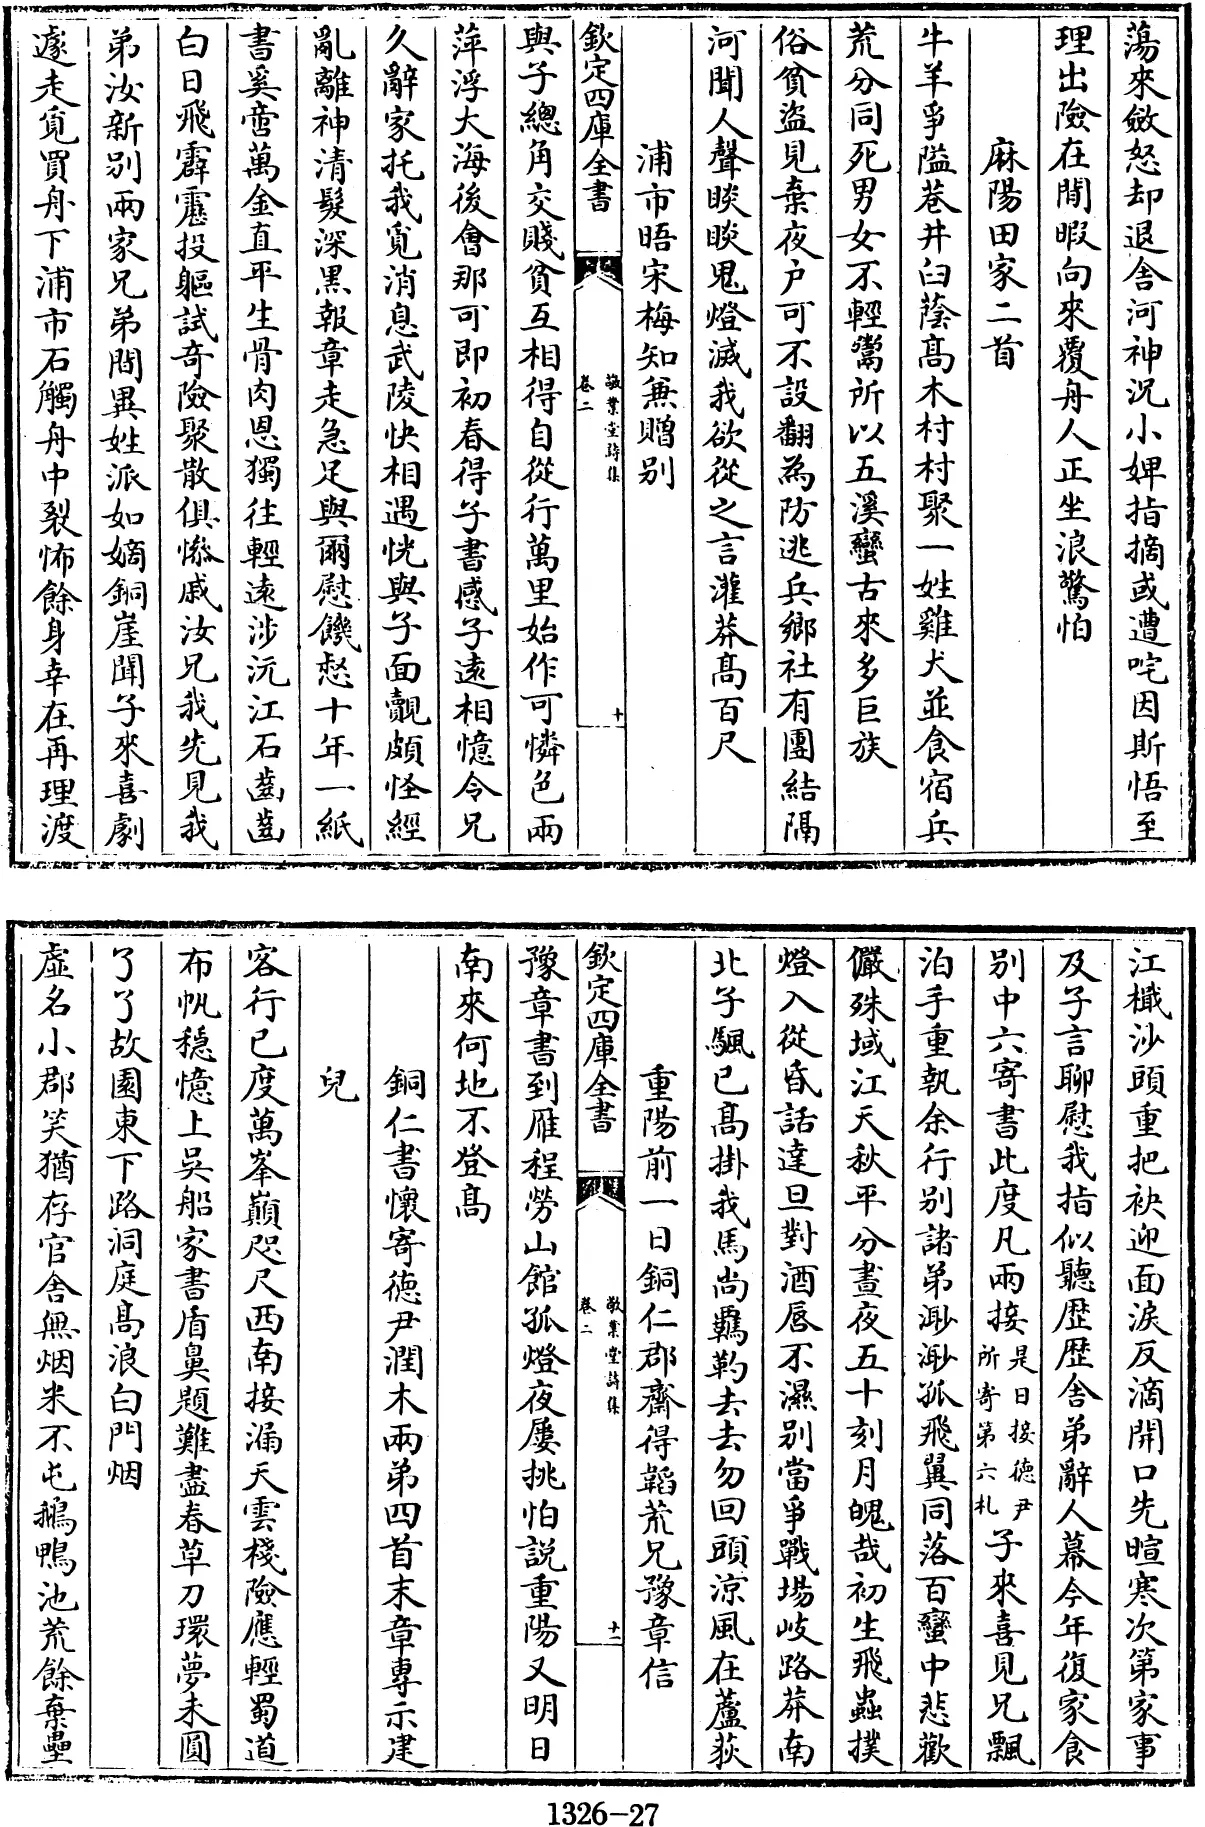 蕩來斂怒却退舍河神况小婢指摘或遭咤因斯悟至
理出險在閒暇向來覆舟人正坐浪驚怕
麻陽田家二首
牛羊爭隘巷井臼蔭髙木村村聚一姓雞犬並食宿兵
荒分同死男女不輕鬻所以五溪蠻古來多巨族
俗貧盜見棄夜户可不設翻為防逃兵鄉社有團結隔
河聞人聲睒睒鬼燈滅我欲從之言灌莽髙百尺
浦市晤宋梅知兼贈别
欽定四庫全書
敬業堂詩集
卷二
十
與子總角交賤貧互相得自從行萬里始作可憐色兩
萍浮大海後會那可即初春得子書感子逺相憶令兄
久辭家托我覓消息武陵快相遇恍與子面覿頗怪經
亂離神清髮深黒報章走急足與爾慰饑惄十年一紙
書奚啻萬金直平生骨肉恩獨往輕逺涉沅江石齒齒
白日飛霹靂投軀試竒險聚散俱慘戚汝兄我先見我
弟汝新别兩家兄弟間異姓派如嫡銅崖聞子來喜劇
遽走覓買舟下浦市石觸舟中裂怖餘身幸在再理渡
江檝沙頭重把袂迎面淚反滴開口先暄寒次第家事
及子言聊慰我指似聽歴歴舍弟辭人幕今年復家食
别中六寄書此度凡兩接
是日接徳尹
所寄第六札
子來喜見兄飄
泊手重執余行别諸弟渺渺孤飛翼同落百蠻中悲歡
儼殊域江天秋平分晝夜五十刻月魄哉初生飛蟲撲
燈入從昏話達旦對酒唇不濕别當爭戰塲岐路莽南
北子颿已髙掛我馬尚羈靮去去勿回頭涼風在蘆荻
重陽前一日銅仁郡齋得韜荒兄豫章信
欽定四庫全書
敬業堂詩集
卷二
十一
豫章書到雁程勞山館孤燈夜屢挑怕説重陽又明日
南來何地不登髙
銅仁書懷寄徳尹潤木兩弟四首末章專示建
兒
客行已度萬峯巔咫尺西南接漏天雲棧險應輕蜀道
布帆穏憶上吳船家書盾鼻題難盡春草刀環夢未圓
了了故園東下路洞庭髙浪白門烟
虚名小郡笑猶存官舍無烟米不屯鵝鴨池荒餘棄壘
1326-27